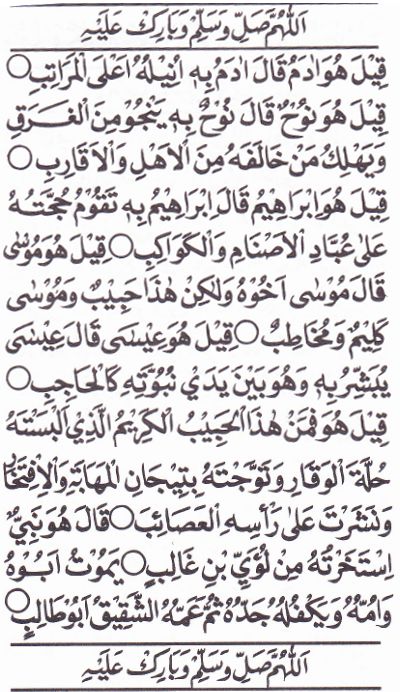 اَللّٰهُمَّ صَلِّ وَسَلِّمْ وَبَارِكْ عَلَيْهِ
قِيْلَ هُوَ اٰدَمُ قَالَ اٰدَمُ بِهٖ اُنِيْلُهُ اَعْلَى الْمَرَاتِبِ ○
قِيْلَ هُوَ نُوْحٌ قَالَ نُوْحٌ بِهٖ يَنْجُوْ مِنَ الْغَرَقِ
وَيَهْلِكُ مَنْ خَالَفَهُ مِنَ الْاَهْلِ وَالْاَقَارِبِ ○
قِيْلَ هُوَ اِبْرَاهِيْمُ قَالَ اِبْرَاهِيْمُ بِهٖ تَقُوْمُ حُجَّتُهُ
عَلٰى عُبَّادِ الْاَصْنَامِ وَالْكَوَاكِبِ ○ قِيْلَ هُوَ مُوْسٰى
قَالَ مُوْسٰى اَخُوْهُ وَلٰكِنْ هٰذَا حَبِيْبٌ وَمُوْسٰى
كَلِيْمٌ وَمُخَاطِبٌ ○ قِيْلَ هُوَ عِيْسٰى قَالَ عِيْسٰى
يُبَشِّرُ بِهٖ وَهُوَ بَيْنَ يَدَيْ نُبُوَّتِهٖ كَالْحَاجِبِ ○
قِيْلَ هُوَ فَمَنْ هٰذَا الْحَبِيْبُ الْكَرِيْمُ الَّذِيْ اَلْبَسْتَهُ
حُلَّةَ الْوَقَارِ وَتَوَّجْتَهُ بِتِيْجَانِ الْمَهَابَةِ وَالْاِفْتِخَارِ
وَنَشَرْتَ عَلٰى رَأْسِهِ الْعَصَائِبَ ○ قَالَ هُوَ نَبِيٌّ
اِسْتَخَرْتُهُ مِنْ لُؤَيِّ بْنِ غَالِبٍ ○ يَمُوْتُ اَبُوْهُ
وَاُمُّهُ وَيَكْفُلُهُ جَدُّهُ ثُمَّ عَمُّهُ الشَّقِيْقُ اَبُوْطَالِبٍ ○
اَللّٰهُمَّ صَلِّ وَسَلِّمْ وَبَارِكْ عَلَيْهِ